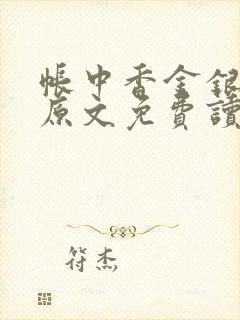 帳中香金銀
原文免費讀
符杰